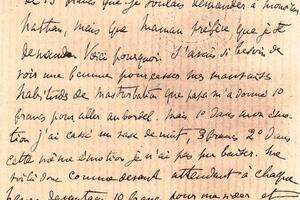 de 13 francs que je voulais demander à monsieur
Nathan, mais que maman préfère que je te
demande. Voici pourquoi. J'avais si besoin de
voir une femme pour cesser mes mauvaises
habitudes de masturbation que papa m'a donné 10
francs pour aller au bordel. Mais 1° dans mon émo
tion j'ai cassé un vase de nuit, 3 francs 2° dans
cette même émotion je n'ai pas pu baiser. Me
voilà donc comme devant attendant à chaque
heure davantage 10 francs pour me vider et